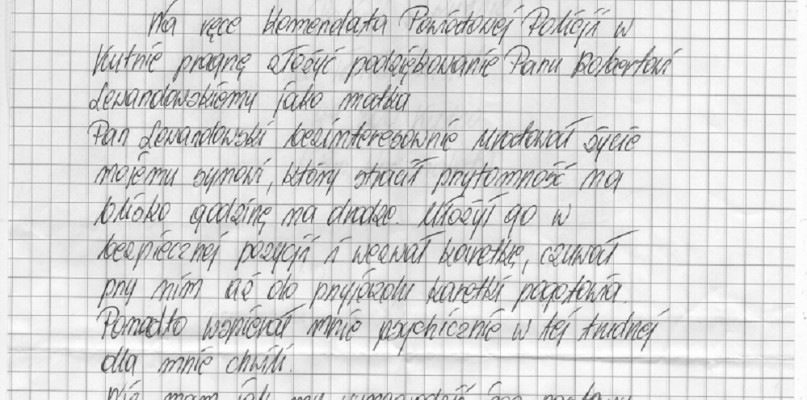 Na ręce Komendata Powiatowej Policji w
Kutnie pragnę złożyć podziękowanie Panu Robertowi
Lewandowskiemu jako matka
Pan Lewandowski bezinteresownie uratował życie
mojemu synowi, który stracił przytomność na
blisko godzinę na drodze. Ułożył go w
bezpiecznej pozycji i wezwał karetkę, czuwał
przy nim aż do przyjazdu karetki pogotowia.
Ponadto wspierał mnie psychicznie w tej trudnej
dla mnie chwili.
Nie mam jak mu wynagrodzić